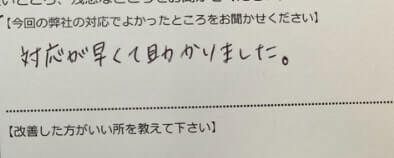 【今回の弊社の対応でよかったところをお聞かせください】
対応が早くて助かりました。
【改善した方がいい所を教えて下さい】